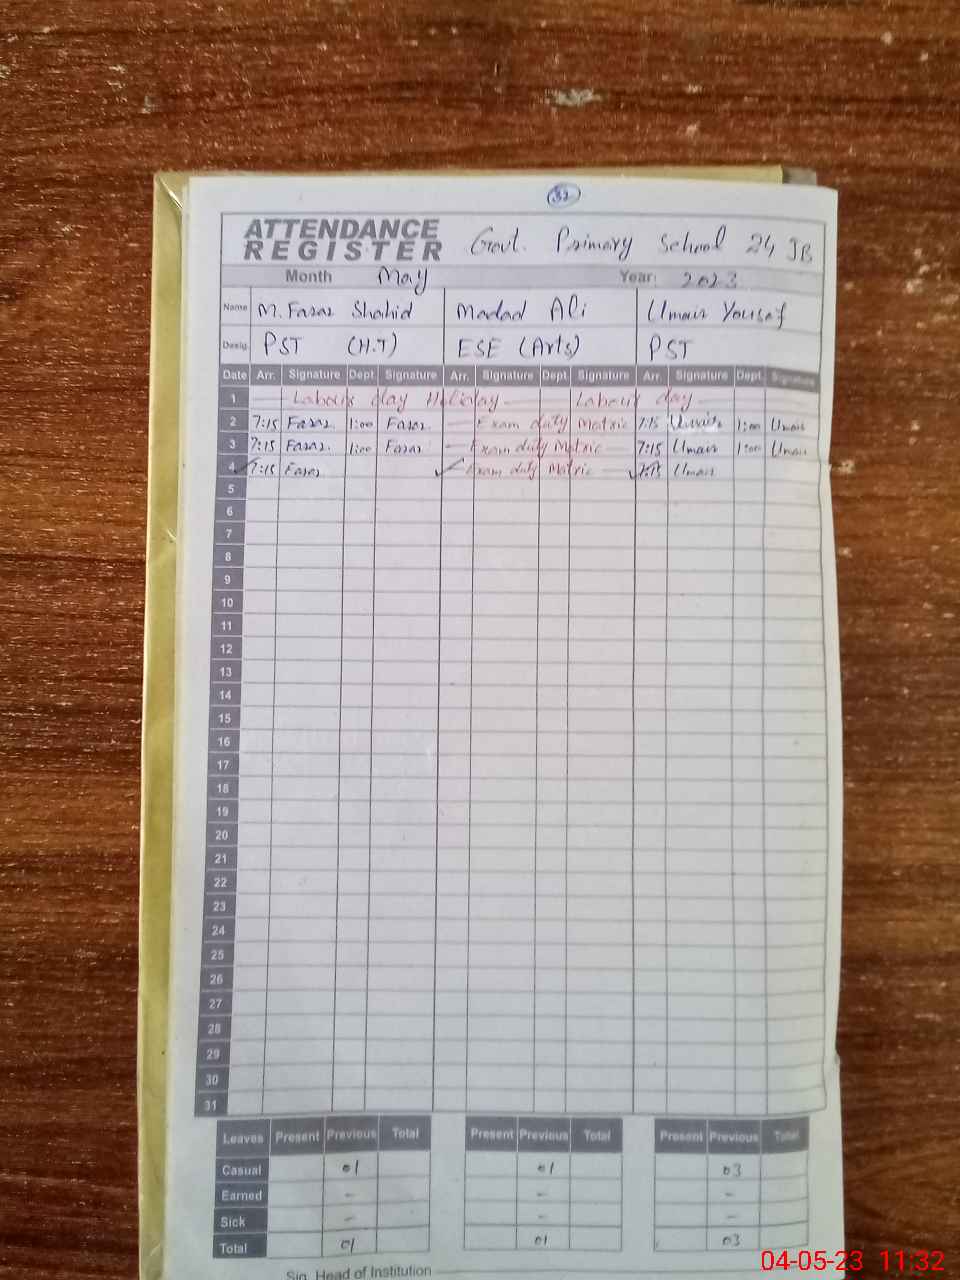 32
ATTENDANCE
REGISTER Govt. Primary School 24 JB
Month May Year: 2023
Name M. Faraz Shahid Madad Ali Umair Yousaf
Desig. PST (H.T) ESE (Arts) PST
Date Arr. Signature Dept. Signature Arr. Signature Dept. Signature Arr. Signature Dept. Signature
1 Labour day Holiday Labour day
2 7:15 Faraz 1:00 Faraz Exam duty Matric 7:15 Umair 1:00 Umair
3 7:15 Faraz 1:00 Faraz Exam duty Matric 7:15 Umair 1:00 Umair
4 7:15 Faraz Exam duty Matric 7:15 Umair
5
6
7
8
9
10
11
12
13
14
15
16
17
18
19
20
21
22
23
24
25
26
27
28
29
30
31
Leaves Present Previous Total Present Previous Total Present Previous Total
Casual 01 01 03
Earned - - -
Sick - - -
Total 01 01 03
Sig. Head of Institution
04-05-23 11:32